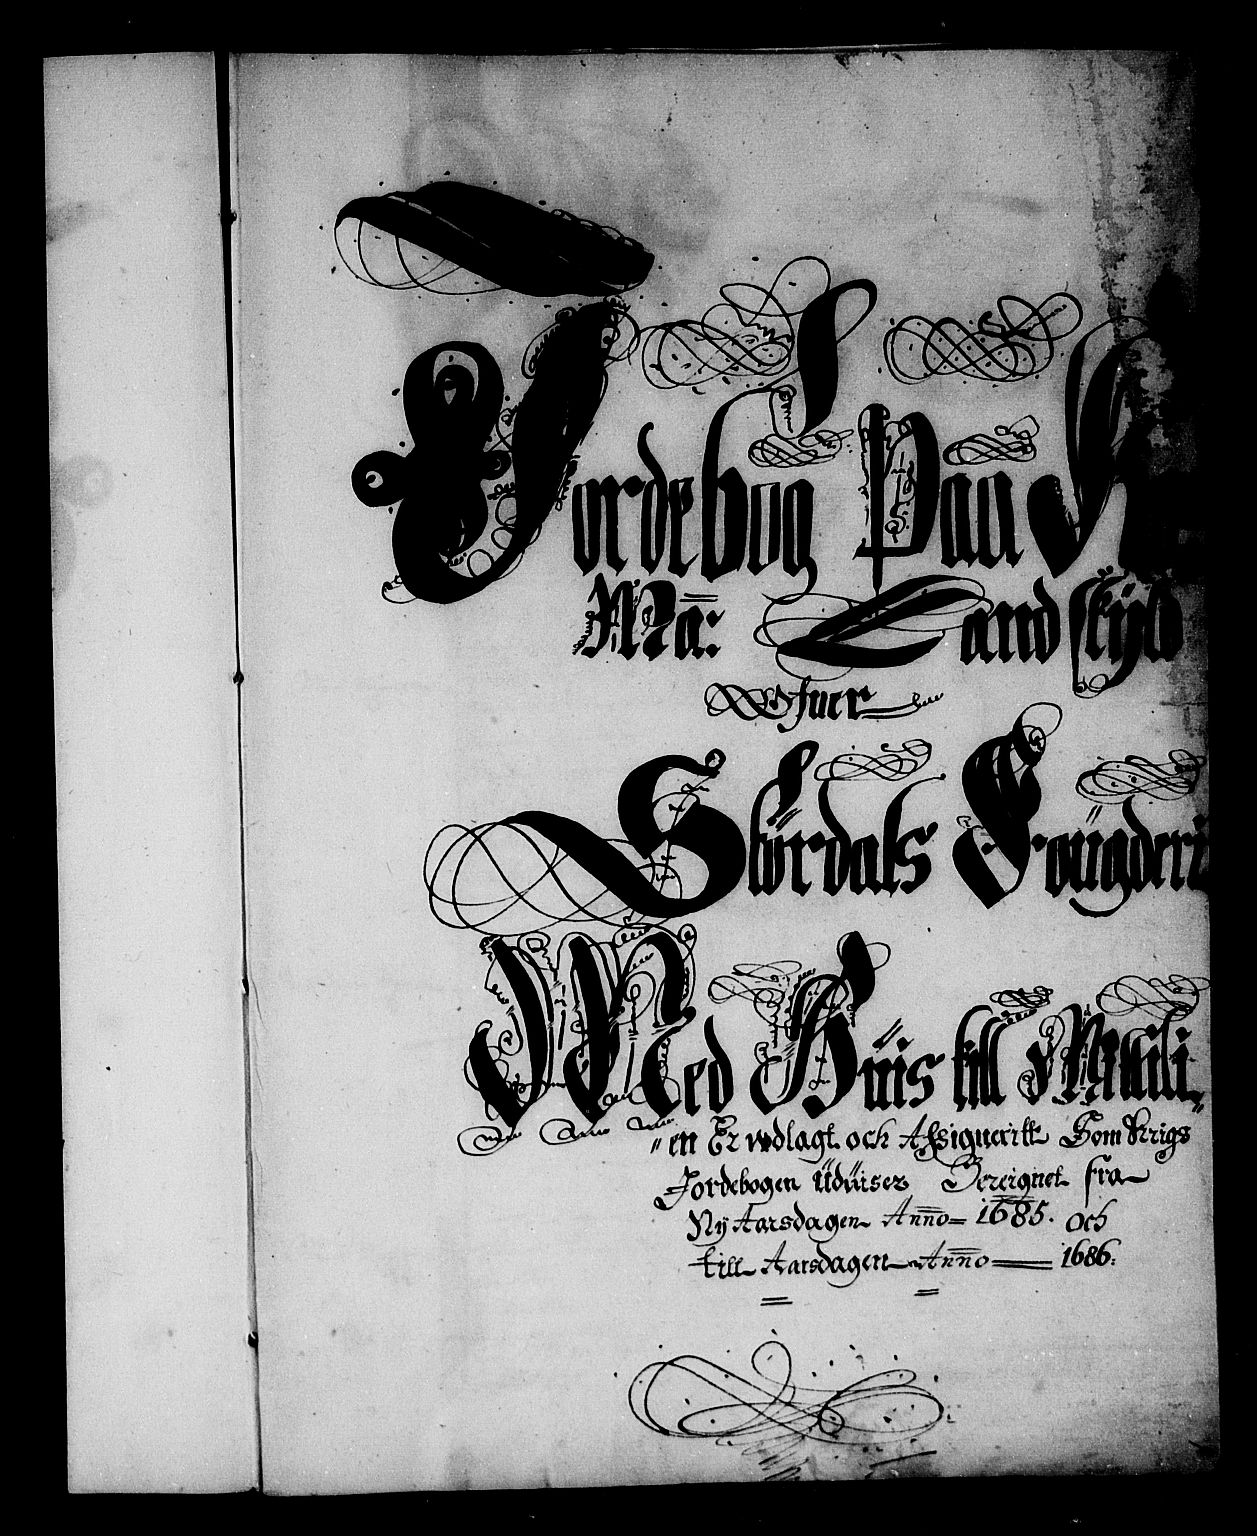 Jordebog Paa
Ma: Landskÿld
Ofuer
Stördals Foügderi
Med Hüis till Millili-
"en Er udlagt och Assigneritt Som Krigs
Jordebogen Üdüiser Bereignet fra
Nÿ Aarsdagen Anno 1685. och
till Aarsdagen Anno 1686: